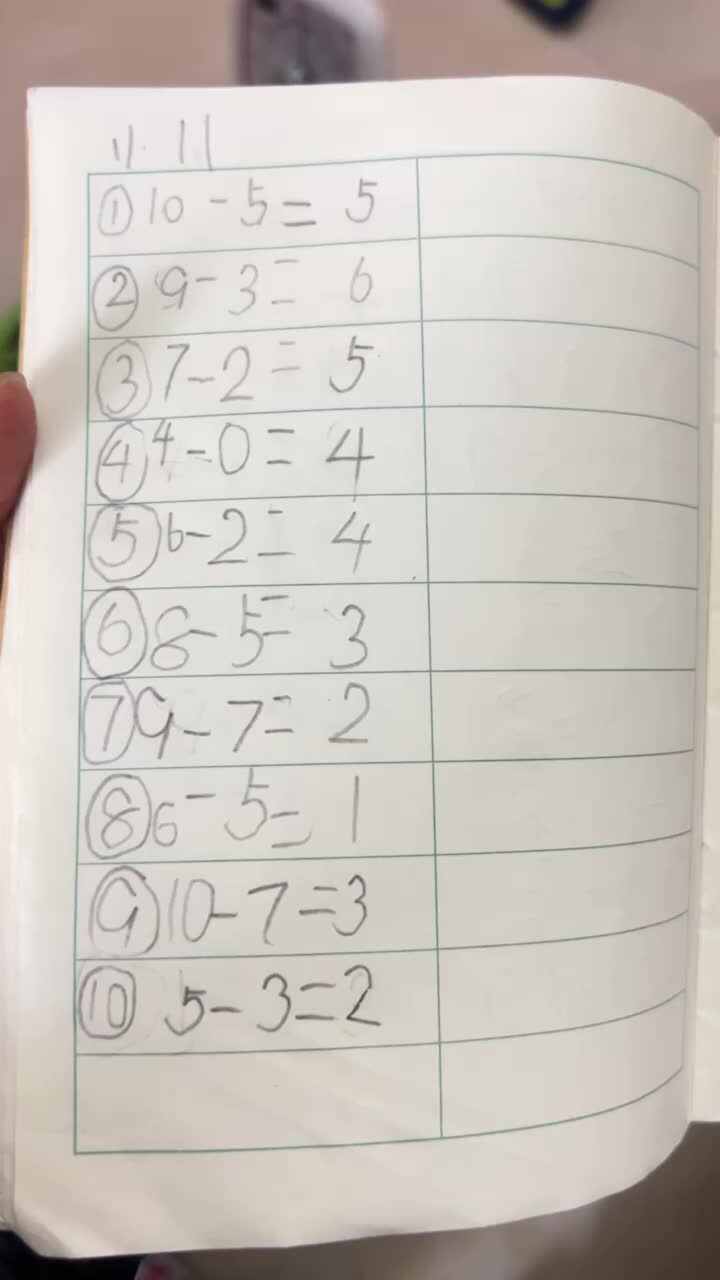 11.11
① 10-5=5
② 9-3=6
③ 7-2=5
④ 4-0=4
⑤ 6-2=4
⑥ 8-5=3
⑦ 9-7=2
⑧ 6-5=1
⑨ 10-7=3
⑩ 5-3=2